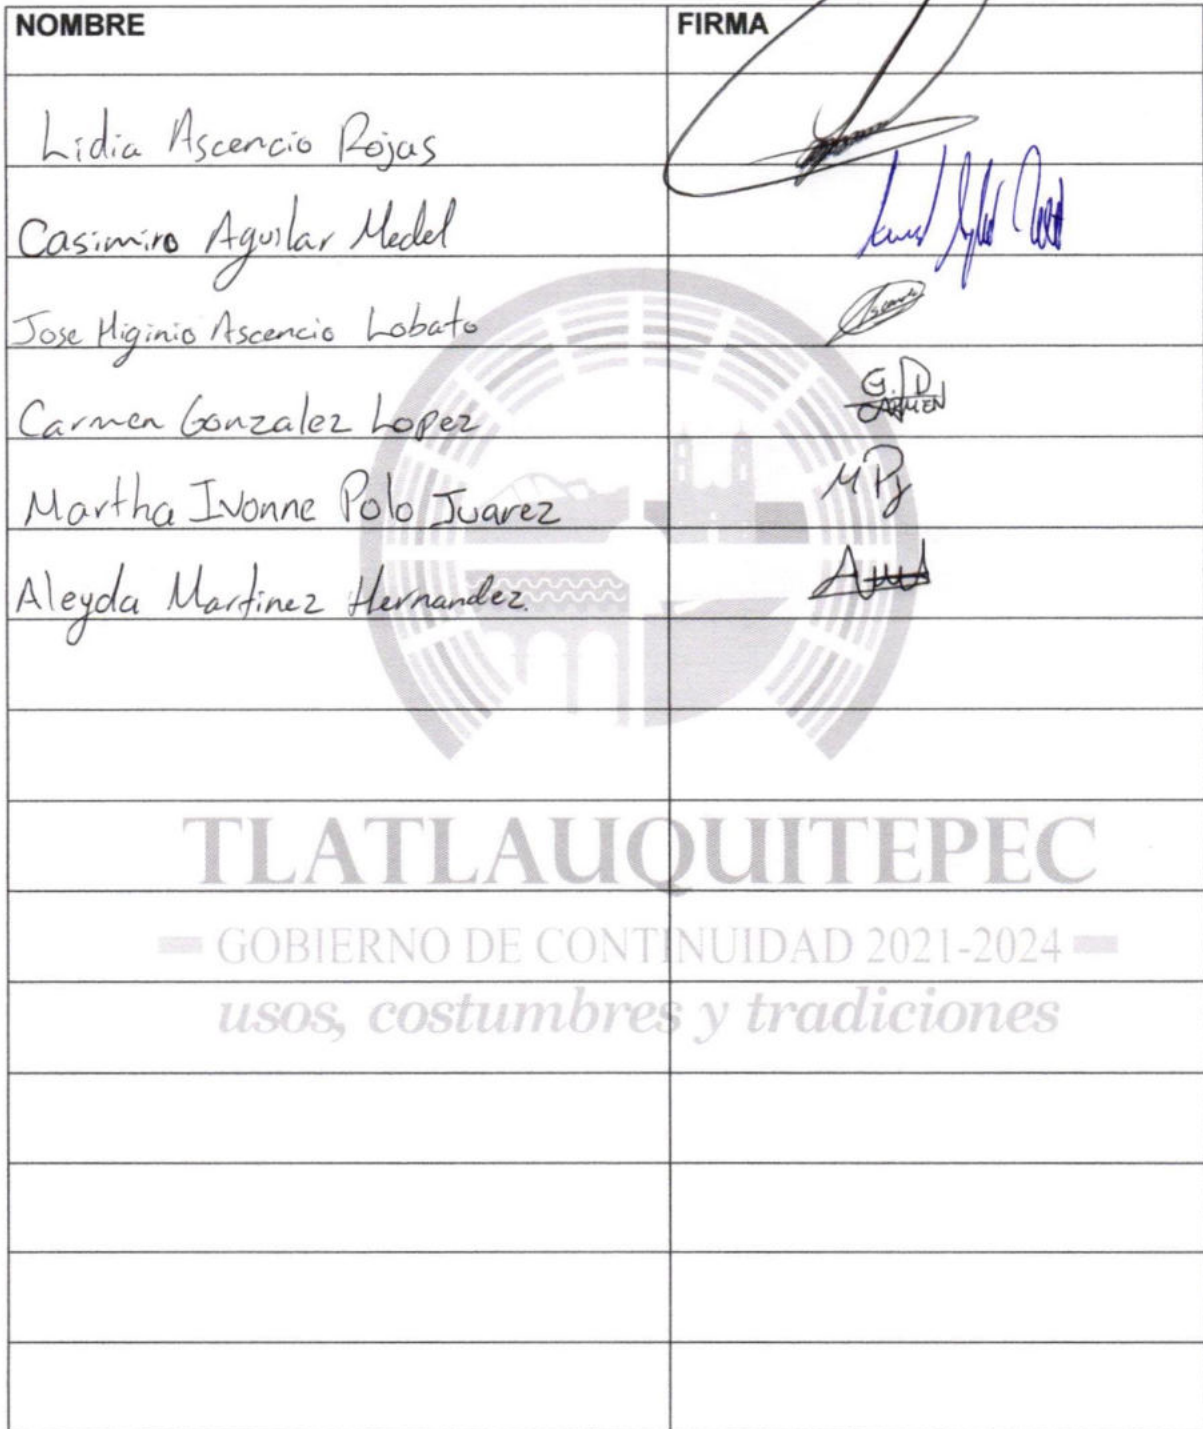 NOMBRE FIRMA
Lidia Ascencio Rojas
Casimiro Aguilar Medel
Jose Higinio Ascencio Lobato
Carmen Gonzalez Lopez G.D. CARMEN
Martha Ivonne Polo Juarez MPJ
Aleyda Martinez Hernandez.
TLATLAUQUITEPEC
GOBIERNO DE CONTINUIDAD 2021-2024
usos, costumbres y tradiciones